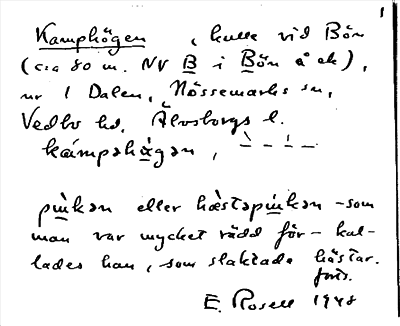 1
Kamphögen, kulle vid Bön
(c:a 80 m. NV B i Bön å ek),
nr 1 Dalen, Nössemarks sn,
Vedbo hd. Älvsborgs l.
kámpahö̀gan,

pɯ̀kən eller hæ̀stəpɯkən - som
man var mycket rädd för - kal-
lades han, som slaktade hästar.
forts.
E. Rosell 1948